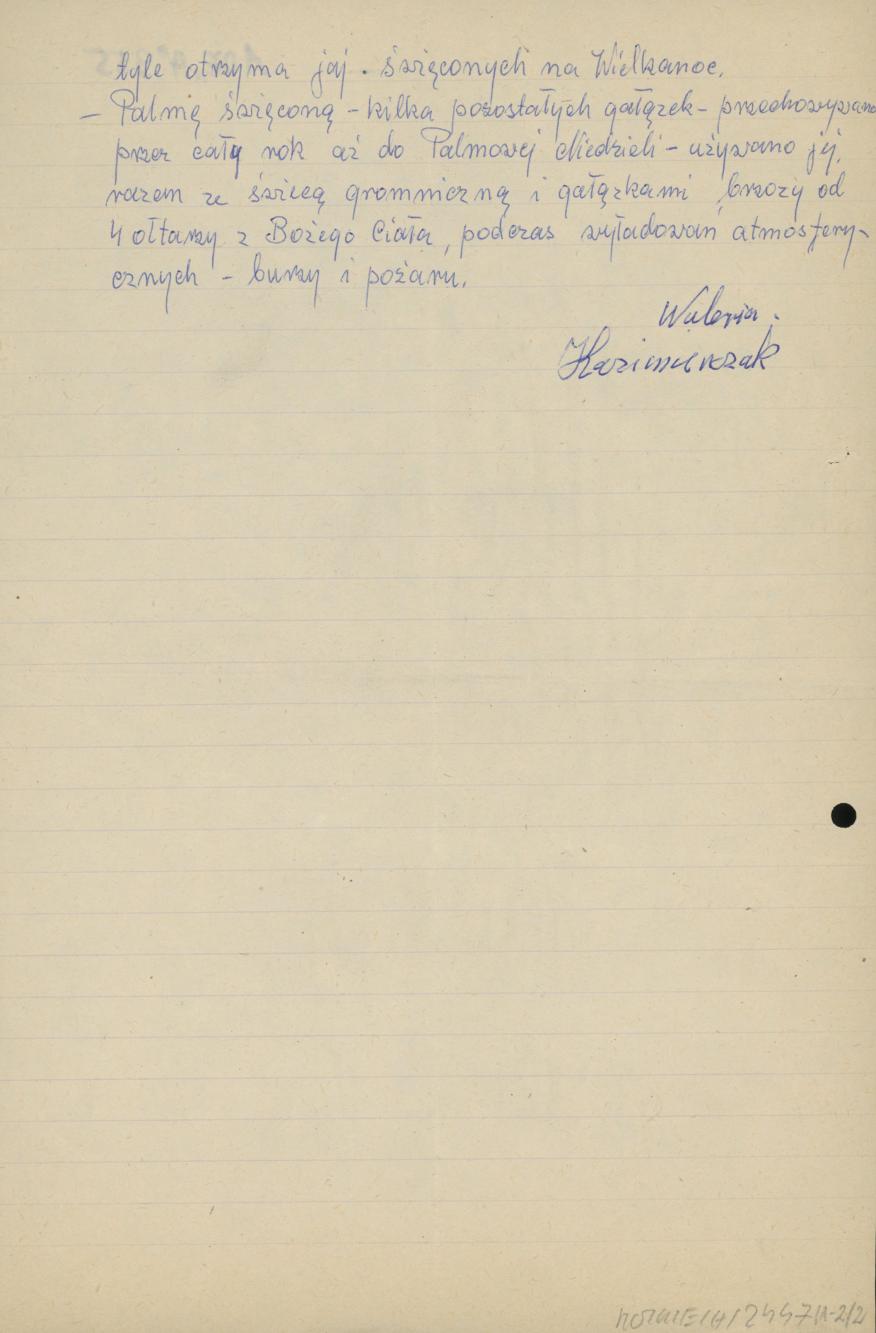 tyle otrzyma jaj . święconych na Wielkanoc.
– Palmę święconą – kilka pozostałych gałązek – przechowywano
przez cały rok aż do Palmowej Niedzieli – używano jej,
razem ze świecą gromniczną i gałązkami brzozy od
4 ołtarzy z Bożego Ciała, podczas wyładowań atmosfery-
cznych – burzy i pożaru.
Waleria
Kazimierczak
2447/A-2/2